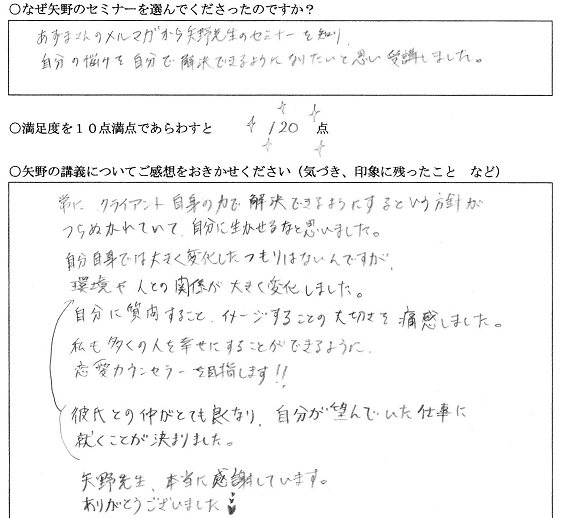 ○なぜ矢野のセミナーを選んでくださったのですか？
あずまさんのメルマガから矢野先生のセミナーを知り、
自分の悩みを自分で解決できるようになりたいと思い受講しました。
○満足度を１０点満点であらわすと　120　点
○矢野の講義についてご感想をおきかせください（気づき、印象に残ったこと　など）
常に、クライアント自身の力で解決できるようにするという方針が
つらぬかれていて、自分に生かせるなと思いました。
自分自身では大きく変化したつもりはないんですが、
環境や人との関係が大きく変化しました。
自分に質問すること、イメージすることの大切さを痛感しました。
私も多くの人を幸せにすることができるように、
恋愛カウンセラーを目指します!!
彼氏との仲がとても良くなり、自分が望んでいた仕事に
就くことが決まりました。
矢野先生、本当に感謝しています。
ありがとうございました